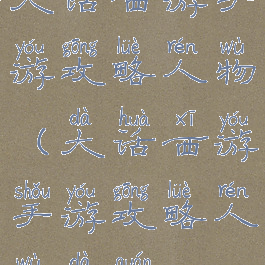 yóu gōng lüè rén wù
游攻略人物
dà huà xī yóu
（大话西游
shǒu yóu gōng lüè rén
手游攻略人